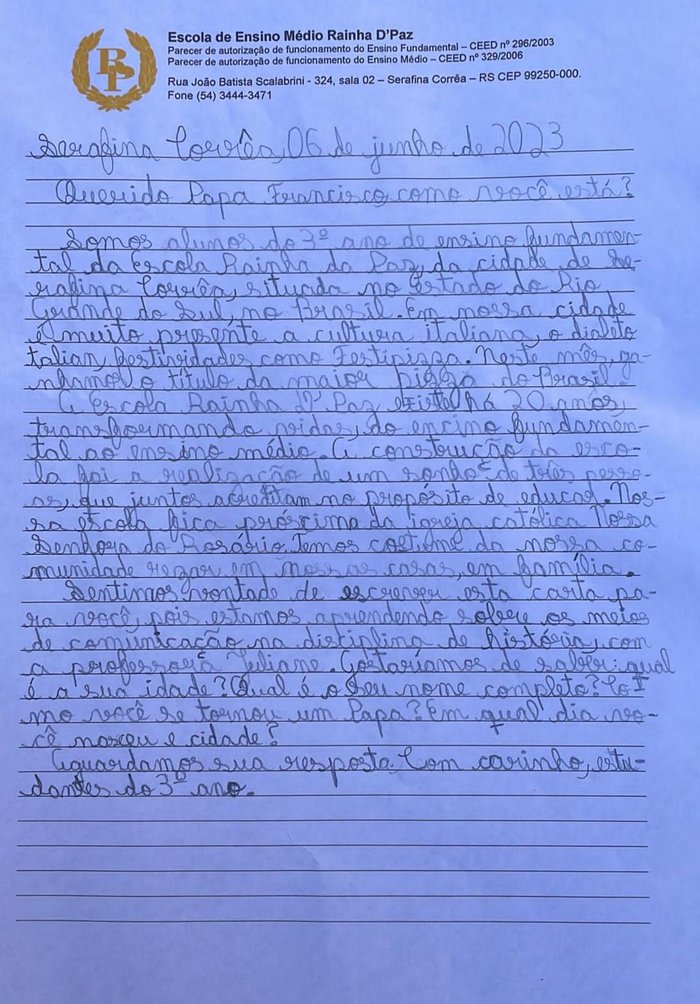 RP
Escola de Ensino Médio Rainha D'Paz
Parecer de autorização de funcionamento do Ensino Fundamental – CEED nº 296/2003
Parecer de autorização de funcionamento do Ensino Médio – CEED nº 329/2006
Rua João Batista Scalabrini - 324, sala 02 – Serafina Corrêa – RS CEP 99250-000.
Fone (54) 3444-3471
Serafina Corrêa, 06 de junho de 2023
Querido Papa Francisco, como você está?
Somos alunos do 3º ano de ensino fundamen-
tal da Escola Rainha da Paz, da cidade de Se-
rafina Corrêa, situada no Estado do Rio
Grande do Sul, no Brasil. Em nossa cidade
é muito presente a cultura italiana, o dialeto
talian, festividades como Festipizza. Neste mês, ga-
nhamos o título da maior pizza do Brasil.
A Escola Rainha D'Paz existe há 20 anos,
transformando vidas, do encino fundamen-
tal ao ensino médio. A construção da esco-
la foi a realização de um sonho de três pesso-
as, que juntos acreditam no propósito de educar. Nos-
sa escola fica próximo da igreja católica Nossa
Senhora do Rosário. Temos costume da nossa co-
munidade rezar em nossas casas, em família.
Sentimos vontade de escrever esta carta pa-
ra você, pois estamos aprendendo sobre os meios
de comunicação na disciplina de história, com
a professora Juliane. Gostaríamos de saber: qual
é a sua idade? Qual é o seu nome completo? Co-
mo você se tornou um Papa? Em qual dia vo-
cê nasceu e cidade?
Aguardamos sua resposta. Com carinho, estu-
dantes do 3º ano.